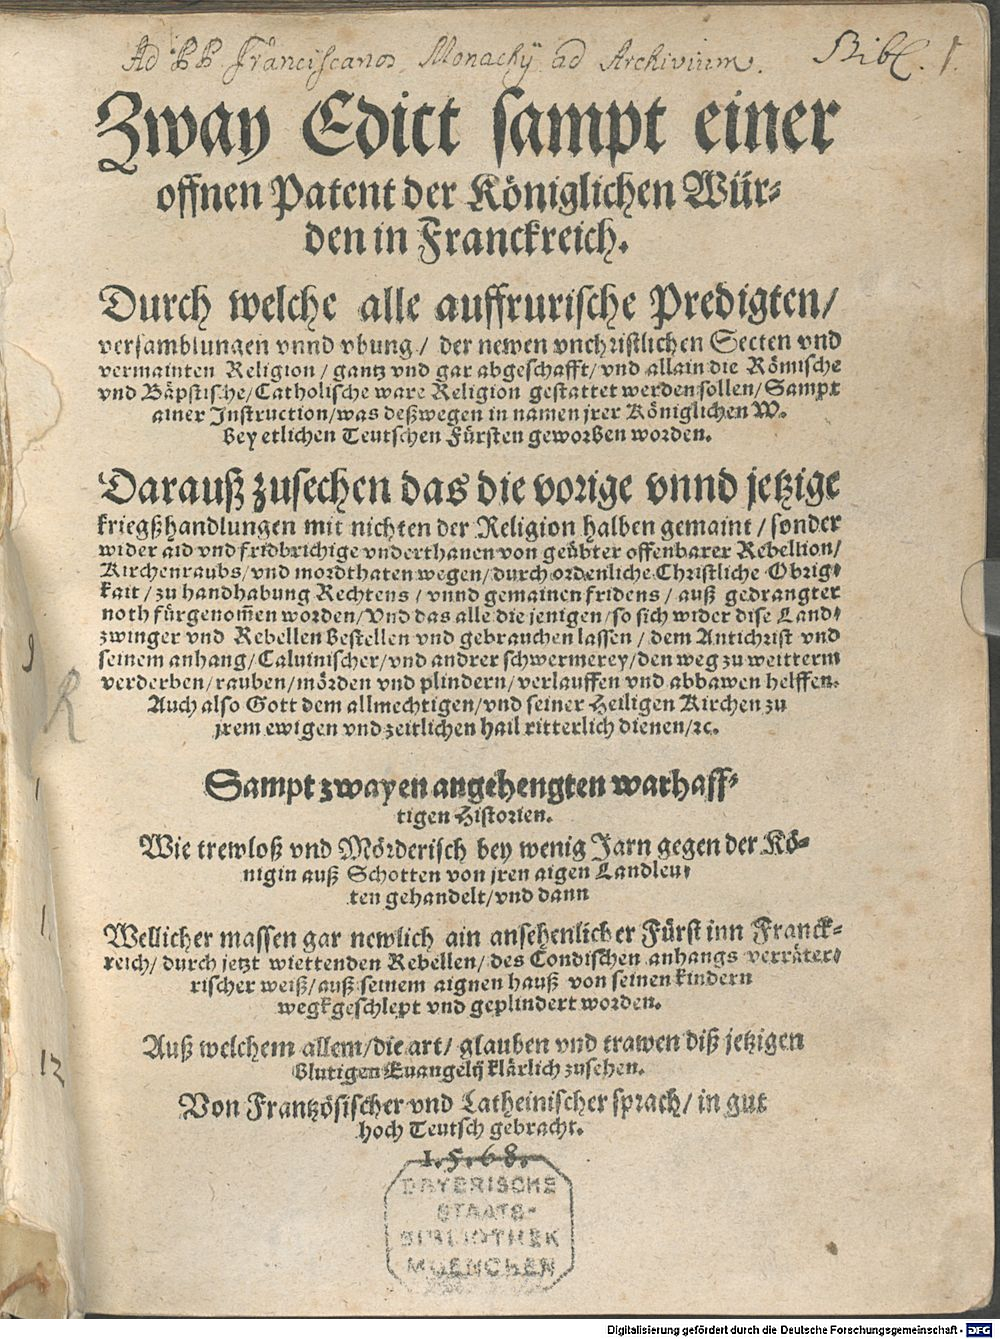 Ad PP Franciscanos Monachij ad Archivium. Bibl. 1.
Zway Edict sampt einer
offnen Patent der Königlichen Wür⸗
den in Franckreich.
Durch welche alle auffrurische Predigten/
versamblungen vnnd vbung/ der newen vnchristlichen Secten vnd
vermainten Religion/ gantz vnd gar abgeschafft/ vnd allain die Römische
vnd Bäpstische/ Catholische ware Religion gestattet werden sollen/ Sampt
ainer Instruction/ was deßwegen in namen jrer Königlichen W.
bey etlichen Teutschen Fürsten geworben worden.
Darauß zusechen das die vorige vnnd jetzige
kriegßhandlungen mit nichten der Religion halben gemaint/ sonder
wider aid vnd fridbrichige vnderthanen von geübter offenbarer Rebellion/
Kirchenraubs/ vnd mordthaten wegen/ durch ordenliche Christliche Obrig⸗
kait/ zu handhabung Rechtens/ vnnd gemainen fridens/ auß gedrangter
noth fürgenom̃en worden/ Vnd das alle die jenigen/ so sich wider dise Land⸗
zwinger vnd Rebellen bestellen vnd gebrauchen lassen/ dem Antichrist vnd
seinem anhang/ Caluinischer/ vnd andrer schwermerey/ den weg zu weitterm
verderben/ rauben/ mörden vnd plindern/ verlauffen vnd abbawen helffen.
Auch also Gott dem allmechtigen/ vnd seiner Heiligen Kirchen zu
jrem ewigen vnd zeitlichen hail ritterlich dienen/ ꝛc.
Sampt zwayen angehengten warhaff⸗
tigen Historien.
Wie trewloß vnd Mörderisch bey wenig Jarn gegen der Kö⸗
nigin auß Schotten von jren aigen Landleu⸗
ten gehandelt/ vnd dann
Wellicher massen gar newlich ain ansehenlicher Fürst inn Franck⸗
reich/ durch jetzt wiettenden Rebellen/ des Condischen anhangs verräter⸗
rischer weiß/ auß seinem aignen hauß von seinen kindern
wegkgeschlept vnd geplindert worden.
Auß welchem allem/ die art/ glauben vnd trawen diß jetzigen
Blutigen Euangelij klärlich zusehen.
Von Frantzösischer vnd Latheinischer sprach/ in gut
hoch Teutsch gebracht.
1.5.68.
BAYERISCHE
STAATS-
BIBLIOTHEK
MUENCHEN
9
R
1
1.
12
Digitalisierung gefördert durch die Deutsche Forschungsgemeinschaft - DFG